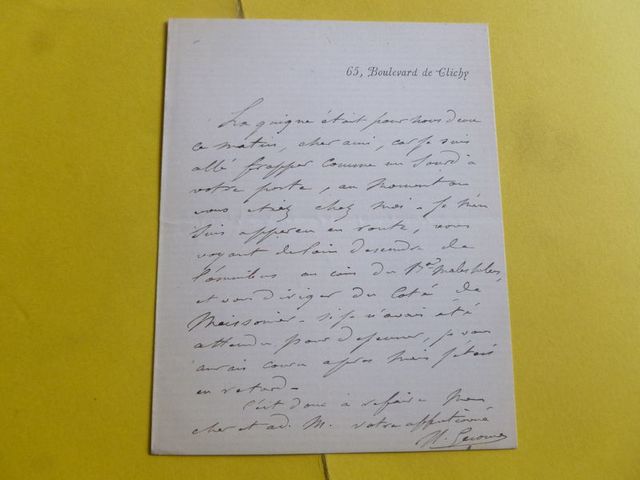 65, Boulevard de Clichy
La guigne était pour nous deux
ce matin, cher ami, car je suis
allé frapper comme un sourd à
votre porte, au moment où
vous étiez chez moi - je m'en
suis apperçu en route, vous
voyant de loin descendre de
l'omnibus au coin du Bd Malesherbes,
et vous diriger du côté de
Meissonier - si je n'avais été
attendu pour déjeuner, je vous
aurais couru après mais j'étais
en retard -
C'est donc à refaire mon
cher et ad. M. votre affectionné